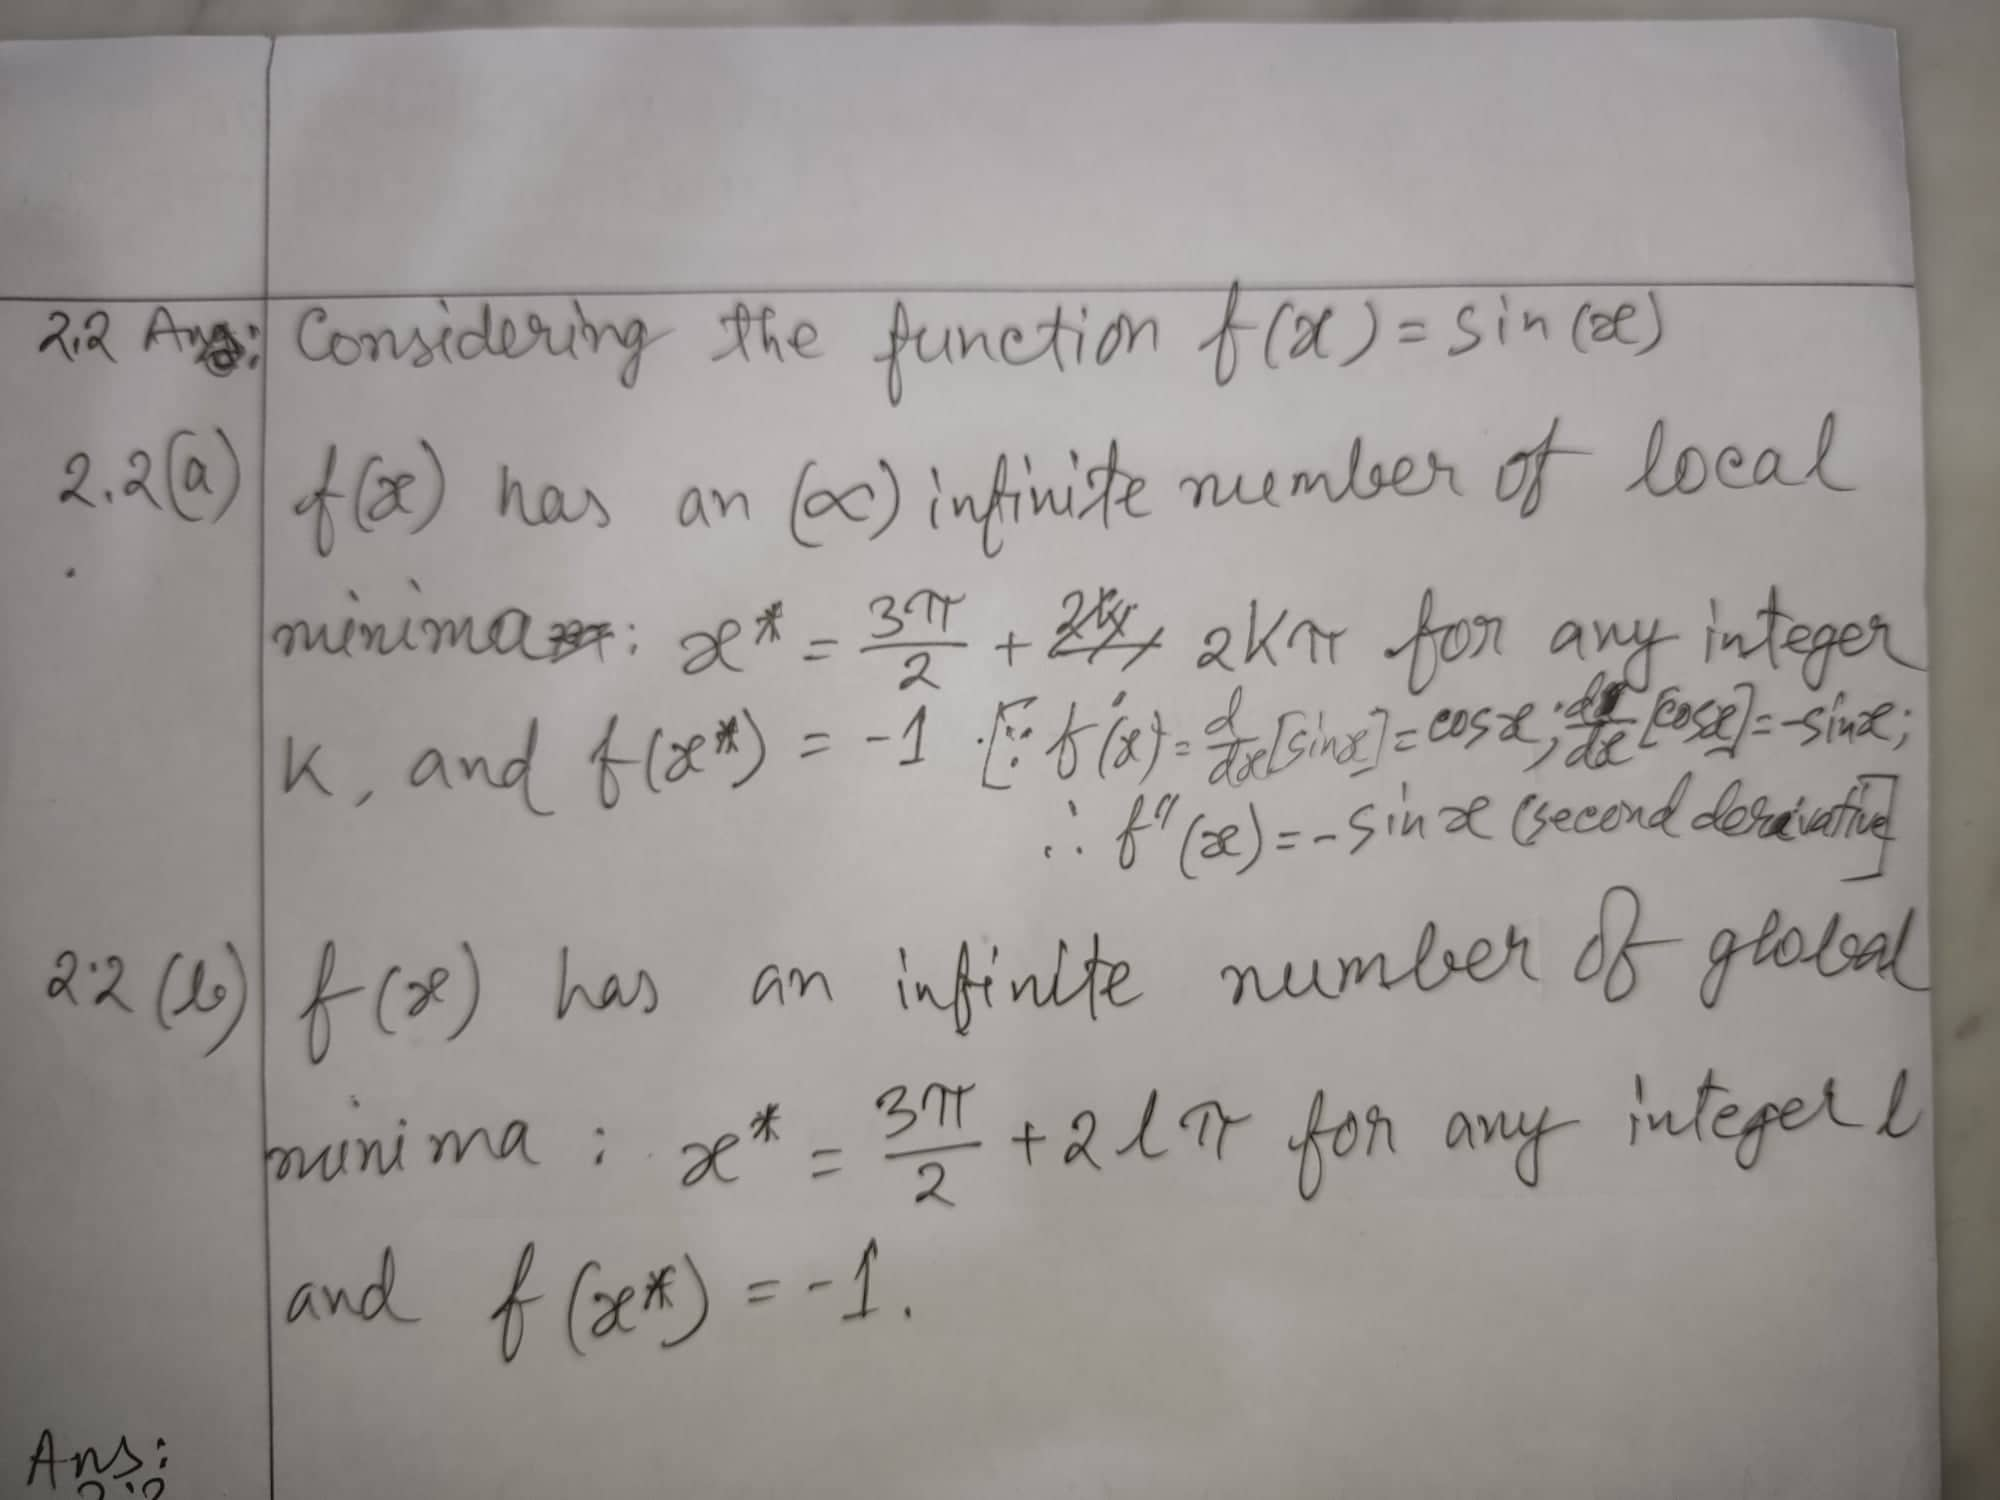 2.2 Ans: Considering the function f(x) = sin(x)
2.2(a) f(x) has an (∝) infinite number of local
minima: x* = 3π/2 + 2kπ for any integer
K, and f(x*) = -1 [∵ f'(x) = d/dx[sinx] = cosx; d/dx[cosx] = -sinx;
∴ f"(x) = -sinx (second derivative]
2.2 (b) f(x) has an infinite number of global
minima : x* = 3π/2 + 2lπ for any integer l
and f(x*) = -1.
Ans:
2.2